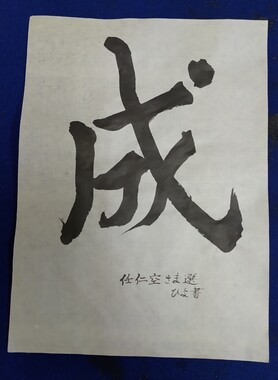 成
仕仁空さま選
ひよ書